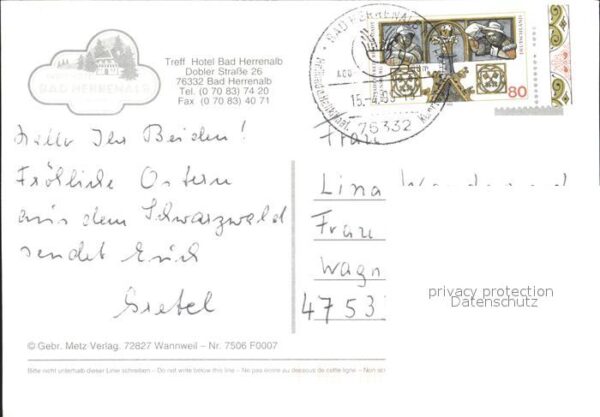 BAD HERRENALB
Treff Hotel Bad Herrenalb
Dobler Straße 26
76332 Bad Herrenalb
Tel. (0 70 83) 74 20
Fax (0 70 83) 40 71
BAD HERRENALB
76332
DEUTSCHLAND
80
Hallo Ihr Beiden!
Fröhliche Ostern
aus dem Schwarzwald
sendet Euch
Gretel
Frau
Lina
Frau
Wagn
4753
privacy protection
Datenschutz
© Gebr. Metz Verlag. 72827 Wannweil – Nr. 7506 F0007
Bitte nicht unterhalb dieser Linie schreiben – Do not write below this line – Ne pas ecrire au dessous de cette ligne – Non scr